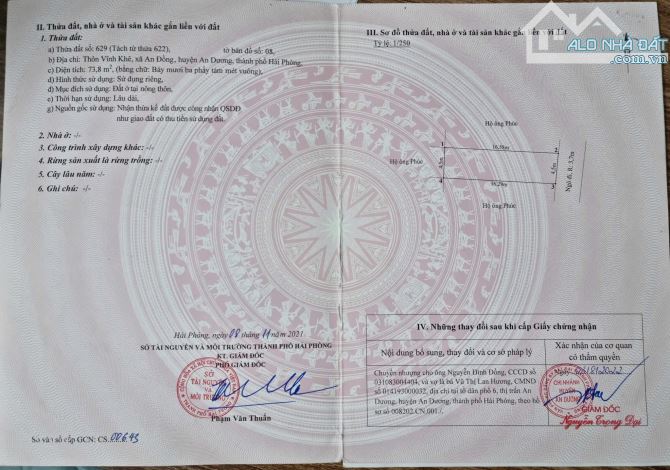 II. Thửa đất, nhà ở và tài sản khác gắn liền với đất
1. Thửa đất:
a) Thửa đất số: 629 (Tách từ thửa 622), tờ bản đồ số: 08,
b) Địa chỉ: Thôn Vĩnh Khê, xã An Đồng, huyện An Dương, thành phố Hải Phòng.
c) Diện tích: 73,8 m², (bằng chữ: Bảy mươi ba phảy tám mét vuông),
d) Hình thức sử dụng: Sử dụng riêng,
đ) Mục đích sử dụng: Đất ở tại nông thôn,
e) Thời hạn sử dụng: Lâu dài,
g) Nguồn gốc sử dụng: Nhận thừa kế đất được công nhận QSDĐ
như giao đất có thu tiền sử dụng đất.
2. Nhà ở: -/-
3. Công trình xây dựng khác: -/-
4. Rừng sản xuất là rừng trồng: -/-
5. Cây lâu năm: -/-
6. Ghi chú: -/-
Hải Phòng, ngày 08 tháng 11 năm 2021
SỞ TÀI NGUYÊN VÀ MÔI TRƯỜNG THÀNH PHỐ HẢI PHÒNG
KT. GIÁM ĐỐC
PHÓ GIÁM ĐỐC
SỞ
TÀI NGUYÊN
VÀ
MÔI TRƯỜNG
Phạm Văn Thuấn
Số vào sổ cấp GCN: CS.
III. Sơ đồ thửa đất, nhà ở và tài sản khác gắn liền với đất
Tỷ lệ: 1/250
ALO NHÀ ĐẤT
Hộ ông Phúc
1
2
Hộ ông Phúc
4,5m
4,5m
Ngõ đi, R: 3,7m
4
3
Hộ ông Phúc
IV. Những thay đổi sau khi cấp Giấy chứng nhận
Nội dung bổ sung, thay đổi và cơ sở pháp lý
Xác nhận của cơ quan
có thẩm quyền
Chuyển nhượng cho ông Nguyễn Đình Đồng, CCCD số
031083004404, và vợ là bà Vũ Thị Lan Hương, CMND
số 014193000032, địa chỉ tại tổ dân phố 6, thị trấn An
Dương, huyện An Dương, thành phố Hải Phòng, theo hồ
sơ số 008202.CN.001./.
CHI NHÁNH
HUYỆN
AN DƯƠNG
GIÁM ĐỐC
Nguyễn Trọng Đại